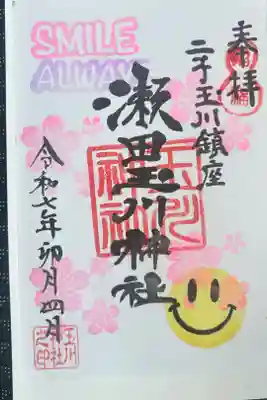 SMILE
ALWAYS
奉拝
二子玉川鎮座
瀬田玉川神社
玉川神社
令和七年卯月四月
玉川神社之印